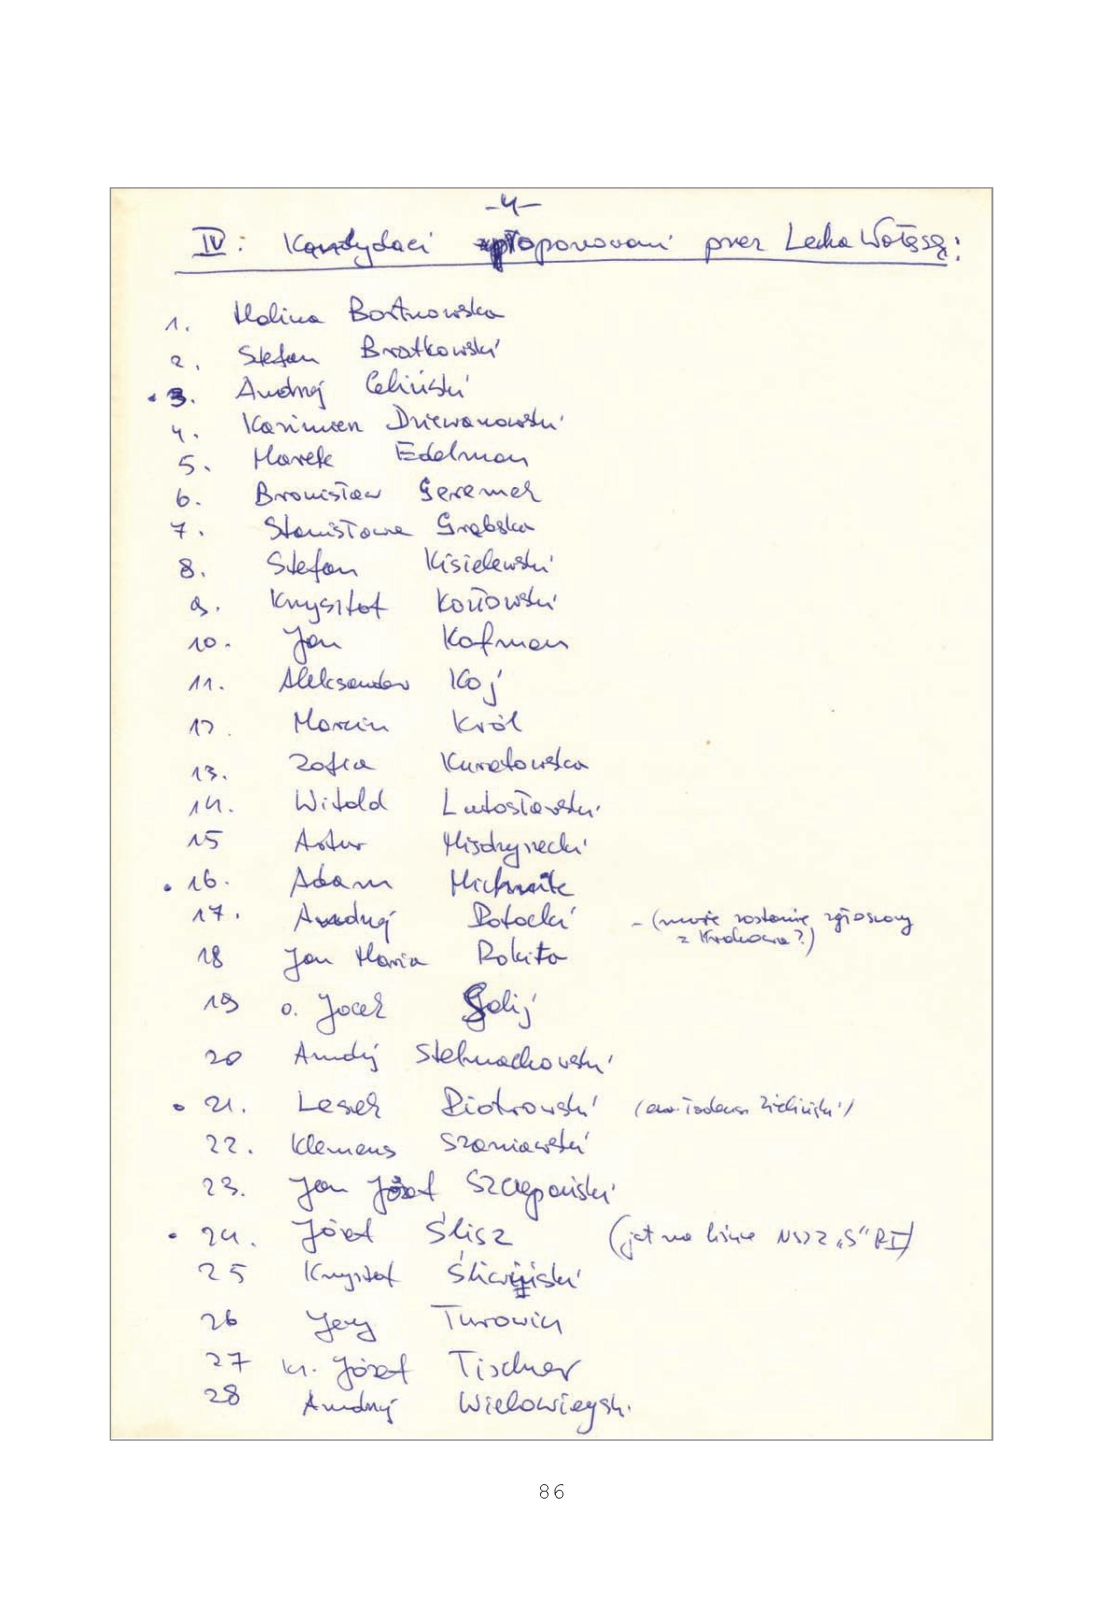 -4-
IV: Kandydaci proponowani przez Lecha Wałęsę:
1. Halina Bortnowska
2. Stefan Bratkowski
• 3. Andrzej Celiński
4. Kazimierz Dziewanowski
5. Marek Edelman
6. Bronisław Geremek
7. Stanisława Grabska
8. Stefan Kisielewski
9. Krzysztof Kozłowski
10. Jan Kofman
11. Aleksander Koj
12. Marcin Król
13. Zofia Kuratowska
14. Witold Lutosławski
15 Artur Międzyrzecki
• 16. Adam Michnik
17. Andrzej Potocki - (może zostanie zgłoszony
z Krakowa?)
18 Jan Maria Rokita
19 o. Jacek Salij
20 Andrzej Stelmachowski
• 21. Leszek Piotrowski (ew. Tadeusz Zieliński)
22. Klemens Szaniawski
23. Jan Józef Szczepański
• 24. Józef Ślisz (jest na liście NSZZ „S” RI)
25 Krzysztof Śliwiński
26 Jerzy Turowicz
27 ks. Józef Tischner
28 Andrzej Wielowieyski
86